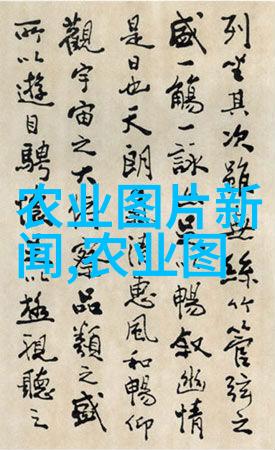 列坐其次雖無絲竹管弦之
盛一觴一詠以暢敘幽情
是日也天朗清惠風和暢仰
觀宇宙之大察品類之盛
所以遊目騁以極視聽之
农业图片新
闻,农业图